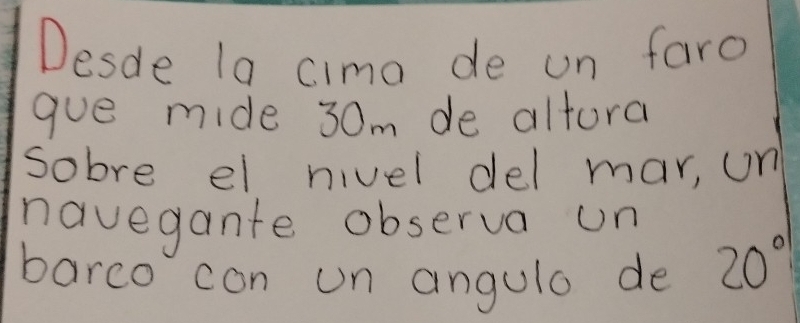 Desde la cima de un faro
que mide 30m de altura
sobre el nivel del mar, un
navegante observa un
barco con un angulo de 20°